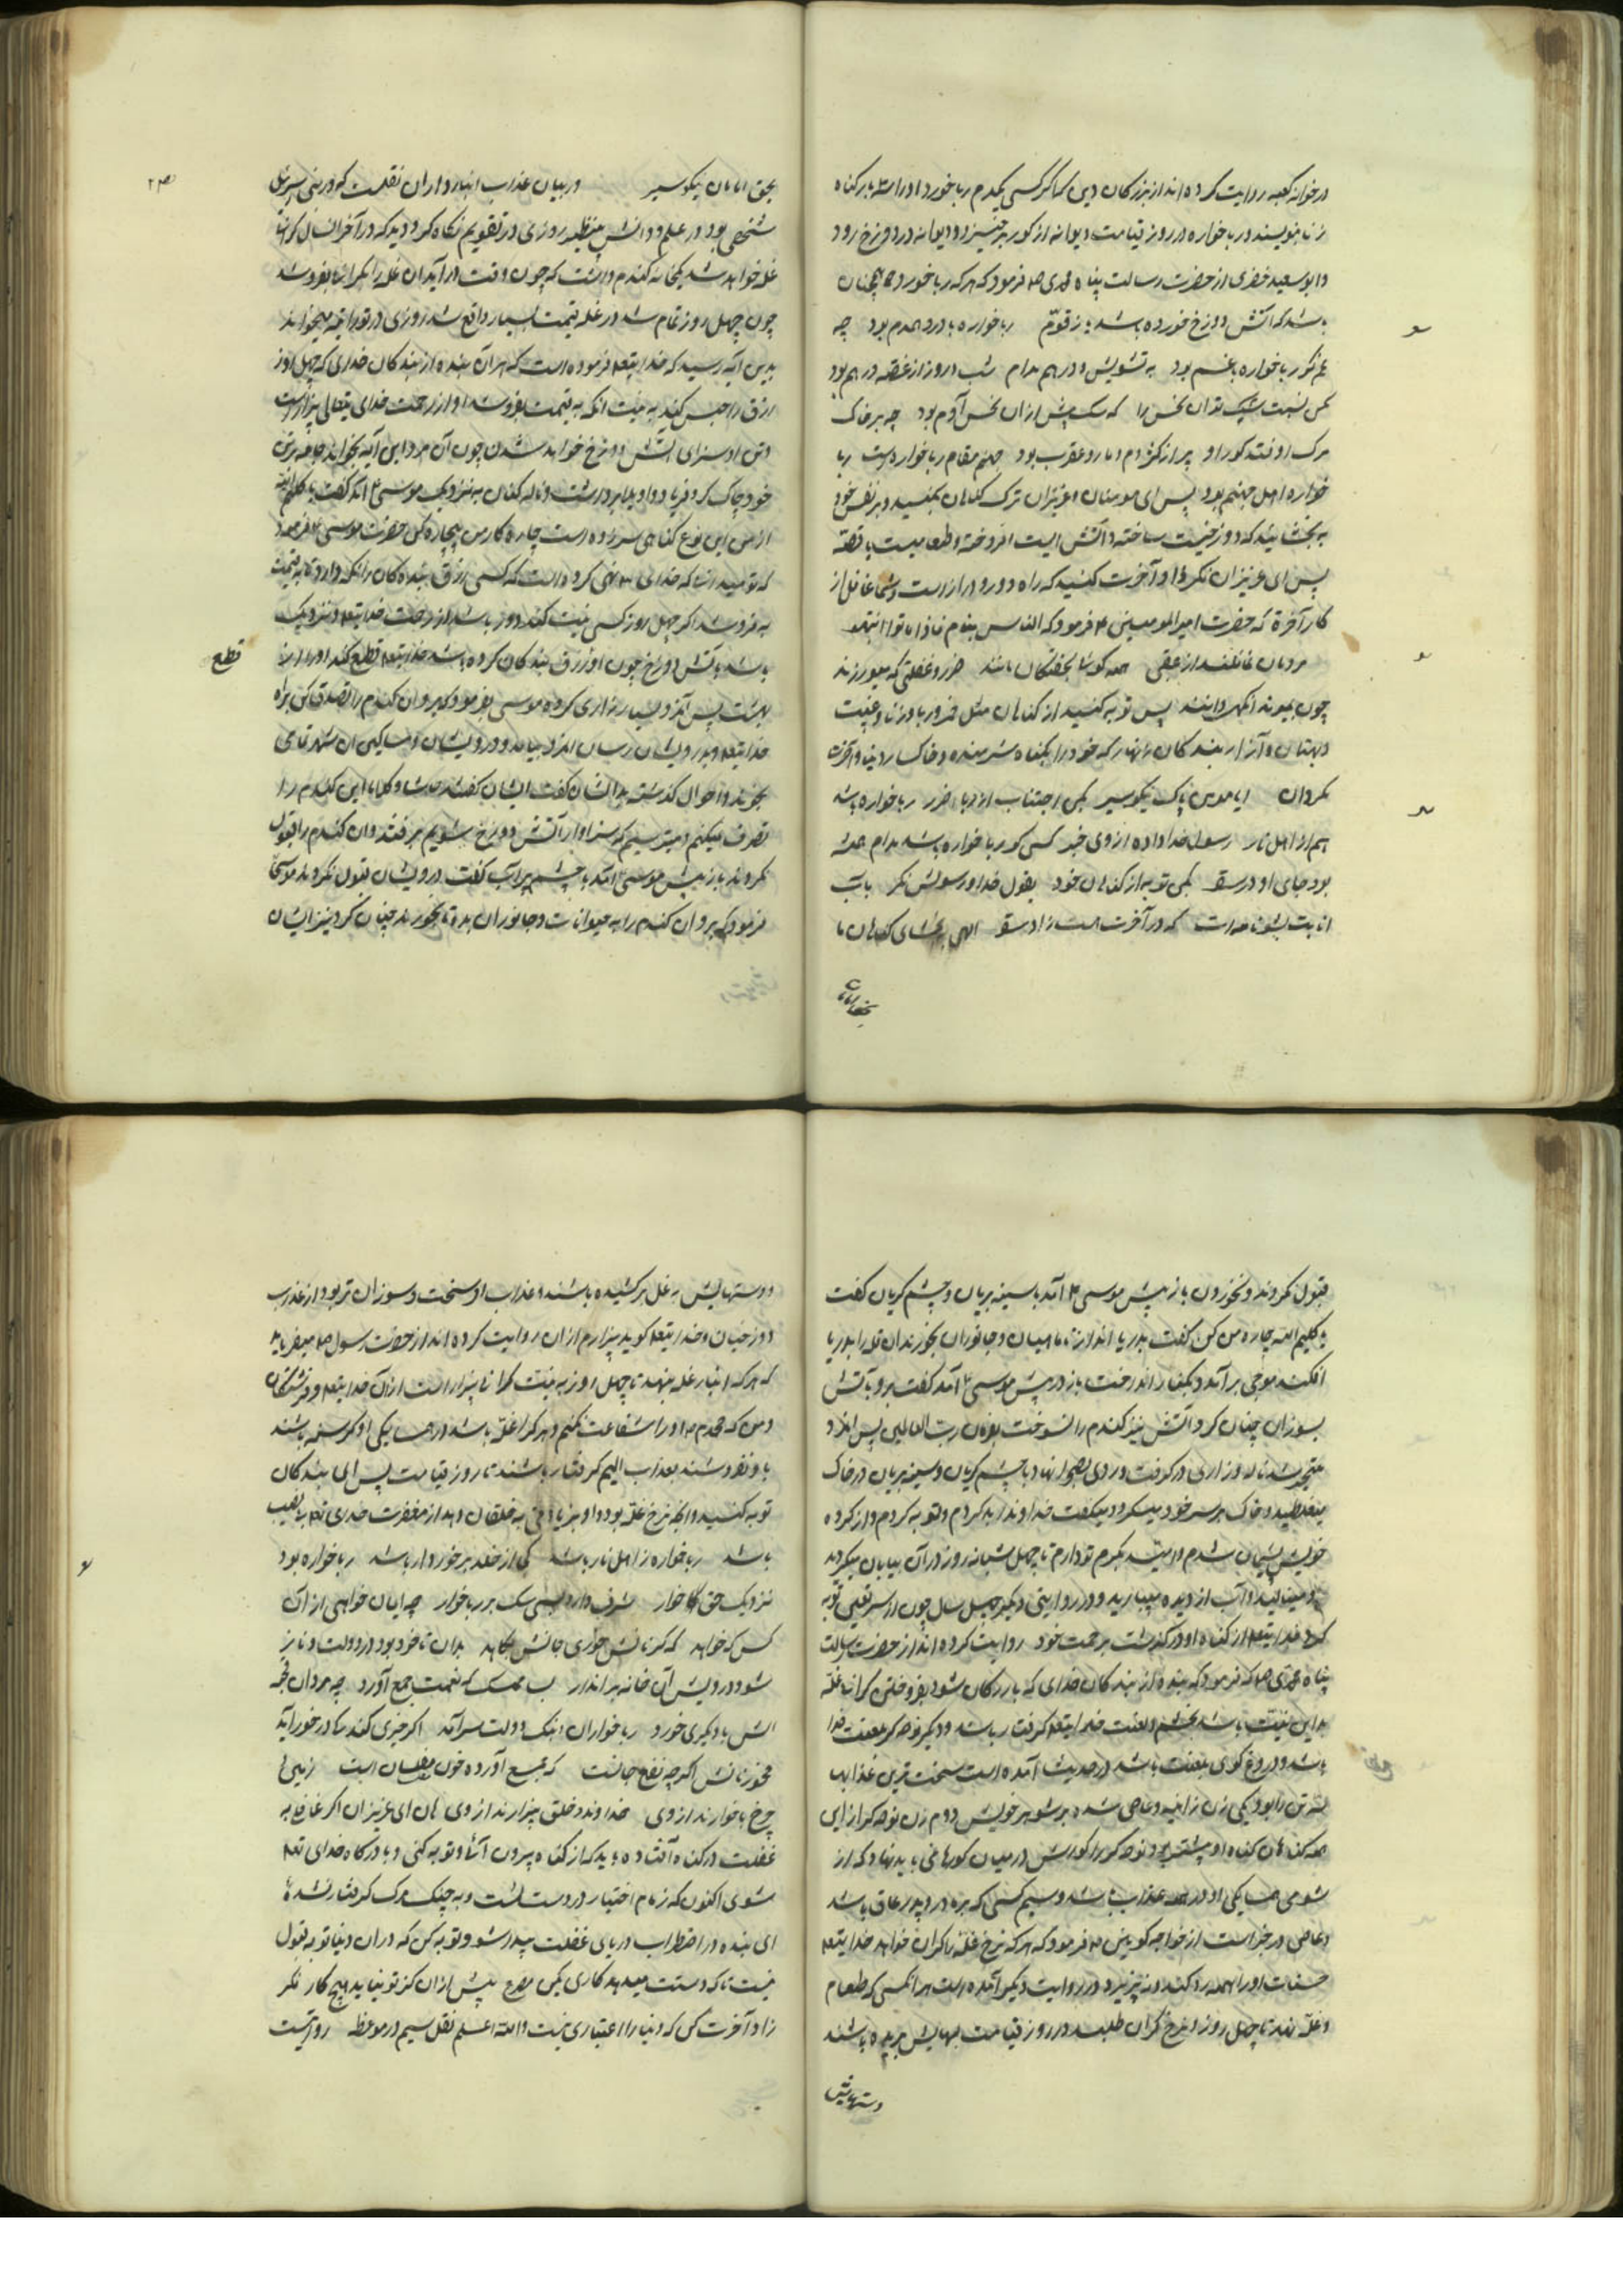 در خوانه کعبه روایت کرده اند از بزرکان دین که اکر کسی یکدرم ربا خورد او را سه بار کناه
زنا بنویسند و ربا خواره در روز قیامت دیوانه از کور برخیزد و دیوانه در دوزخ رود
و ابو سعید خضری از حضرت رسالت پناه محمدی ص فرمود که هرکه ربا خورد همچنان
باشد که آتش دوزخ خورده باشد زقوّم ربا خواره با درد همدم بود چه
غم کر ربا خواره بغم بود به تشویش و درهم مدام شب و روز از غصه درهم بود
مکن نسبت سک تو آن نحس را که سک بیش از آن نحس آدم بود چه بر خاک
مرک اوفتد کور او پر از کژدم و مار و عقرب بود جهنم مقام ربا خواره است ربا
خواره اهل جهنم بود پس ای مومنان و عزیزان ترک کناهان بکنید و بر نفس خود
به بخشائید که دوزخیست ساخته و آتش است افروخته و طعامیست با قصّه
پس ای عزیزان فکر زاد آخرت کنید که راه دور و دراز است و شما غافل از
کار آخرة که حضرت امیر المومنین ع فرمود که الناس ینام فاذا ماتوا انتبهو
مردمان غافلند از عقبی همه کویا بخفتکان مانند ضرر و غفلتی که میورزند
چون بمیرند انکهی دانند پس توبه کنید از کناهان مثل خمر و ربا و زنا و غیبت
و بهتان و آزار بندکان زنهار که خود را بکناه شرمنده و خاکسار دنیا و آخرت
مکردان ایا مومن پاک نیکو سیر بکن اجتناب از ربا حذر ربا خواره باشد
هم از اهل نار رسول خدا داده از وی خبر کسی کو ربا خواره باشد مدام همه
بود جای او در سقر بکن توبه از کناهان خود بقول خدا و رسولش نکر بآب
انابت بشو نامه ات که در آخرت هست زاد سفر الهی ببخشای کناهان ما
بحق امامان
بحق امامان نیکو سیر در بیان عذاب انبارداران نقلست که در بنی اسرئل
شخصی بود در علم و دانش بی نظیر روزی در تقویم نکاه کرد و دید که در آخر آن سال کران
غله خواهد شد یکخانه کندم داشت که چون وقت در آید آن غله را بکران بفروشد
چون چهل روز تمام شد در غله قیمت بسیار واقع شد روزی در توراته میخواند
بدین آیه رسید که خدایتعه فرموده است که هر آن بنده از بندکان خدای که چهل روز
رزق را حبس کنید به نیت انکه به قیمت بفروشد او از رحمت خدای تعالی بیزار است
و تن او سزای آتش دوزخ خواهد شدن چون آن مرد این آیه بخواند جامه بر تن
خود چاک کرد و فریاد و واویلا برداشت و ناله کنان به نزدیک موسی ع آمد کفت یا کلیم الله
از من این نوع کناهی سرزده است چاره کار من بیچاره کن حضرت موسی ع فرمود
که نومید آنست که خدای تعه نهی کرده است که کسی رزق بنده کان را نکه دارد تا به قیمت
به فروشد اکر چهل روز کسی نیت کند دور باشد از رحمت خدایتعه و نزدیک
باشد بآتش دوزخ چون او رزق بندکان کرده باشد خدایتعه قطع کند او را از
قطع
بهشت پس آنمرد بسیار زاری کرد موسی بفرمود که برو آن کندم را تصدق کن براه
خدایتعه و بدرویشان رسان انمرد بیامد و درویشان و مساکین آن شهر تمامی
بخواند و احوال کذشته بدانشان کفت ایشان کفتند حاشا و کلا ما این کندم را
تصرف نمیکنیم و میترسیم که سزاوار آتش دوزخ بشویم برفتند و آن کندم را قبول
نکردند باز پیش موسی آمد با چشم پر آب کفت درویشان قبول نکردند موسی
فرمود که برو آن کندم را به حیوانات و جانوران بده تا بخورند چنان کرد نیز ایشان
قبول نکردند و نخوردن باز پیش موسی ع آمد با سینه بریان و چشم کریان کفت
یا کلیم الله چاره من کن کفت بدریا انداز تا ماهیان و جانوران بخورند آن غله را بدریا
افکند موجی بر آمد و بکنار انداخت باز در پیش موسی ع آمد کفت برو بآتش
بسوزان چنان کرد آتش نیز کندم را نسوخت بفرمان رب العالمین پس انمرد
متحیر شد ناله و زاری در کرفت و روی بصحرا نهاد با چشم کریان و سینه بریان در خاک
میغلطید و خاک بر سر خود میکرد و میکفت خداوندا بد کردم و توبه کردم و از کرده
خویش پشیمان شدم و امید بکرم تو دارم تا چهل شبانه روز در آن بیابان میکردید
و مینالید و آب از دیده میبارید و در روایتی دیکر چهل سال چون از سر یقین توبه
کرد خدایتعه از کناه او در کذشت برحمت خود روایت کرده اند از حضرت رسالت
پناه محمدی ص که فرمود که بنده از بندکان خدای که بازرکان شود بفروختن کران غله
بداین نیت باشد بخشم و لعنت خدایتعه کرفتار باشد و دیکر نوحه کر بلعنت خدا
باشد و دروغ کوی بلعنت باشد در حدیث آمده است سخت ترین عذابها
سه تن را بود یکی زن زانیه و عاصی شده بر شوهر خویش دوم زن نوحه کر از این
همه کناهان کناه او بیشتر بود نوحه کر را کورش در میان کورها نمی باید نهاد که از
شومی همسایکی او در همه عذاب باشد و سیم کسی که بر مادر و پدر عاق باشد
و عاصی در خبر است از خواجه کونین ص فرمود که هرکه نرخ غله را کران خواهد خدایتعه
حسنات او را همه رد کند و نه پزیرد و در روایت دیکر آمده است هر انکسی که طعام
و غله نهد تا چهل روز و نرخ کران طلبد در روز قیامت لبهایش بریده باشند
دستهایش
و دستهایش به غل بر کشیده باشند و عذاب او سخت و سوزان تر بود از عذاب
دوزخیان و خدایتعه کوید بیزارم از آن روایت کرده اند از حضرت رسول ص میفرماید
که هرکه انبار غله بنهد تا چهل روز به نیت کرانی بیزار است از آن خدایتعه و فرشتکان
و من که محمدم ص او را شفاعت نکنم و هرکرا غله باشد و در همسایکی او کرسنه باشند
با و نفروشند بعذاب الیم کرفتار باشند تا روز قیامت پس ای بندکان
توبه کنید و انچه نرخ غله بود و او بزیادتی به خلقان دهد از مغفرت خدای تعه بی نصیب
باشد ربا خواره ز اهل نار باشد کی از خلد برخوردار باشد ربا خواره بود
نزدیک حق خوار شرف دارد بسی سک بر ربا خوار چه ایمان خواهی از آن
کس که خواهد که کر نانش خوری جانش بکاهد بدان تا خود بود در دولت و ناز
شود درویش آن خانه برانداز بسا ممسک که نعمت جمع آورد چه مردان
اش با دیکری خورد ربا خواران اینک دولت سرآمد اکر چیزی کند تا در خور آید
مخور نانش اکر چه نفع جانست که جمع آورده خون مفلسان است زمین
چرخ با خوارند از وی خداوند و خلق بیزارند از وی هان ای عزیزان اکر غافل به
غفلت در کناه افتاده باید که از کناه بیرون آئ و توبه کنی و با درکاه خدای تعه
شوی اکنون که زمام اختیار در دست تست و به چنک مرک کرفتار نشده
ای بنده در اضطراب دریای غفلت بیدار شو و توبه کن که در آن دنیا توبه قبول
نیست تا که دستت میدهد کاری بکن مصرع پیش از آن کز تو نیاید هیچ کار فکر
زاد آخرت کن که دنیا را اعتباری نیست والله اعلم نقل سیم در موعظه روایتست